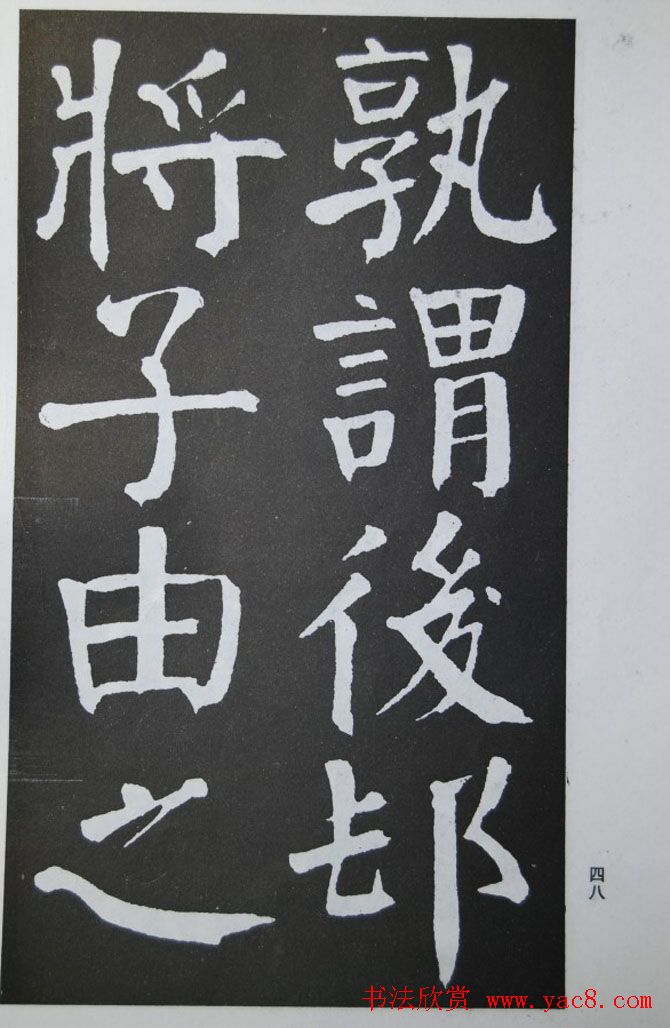 孰謂後邨
將子由之
四八
书法欣赏 www.yac8.com